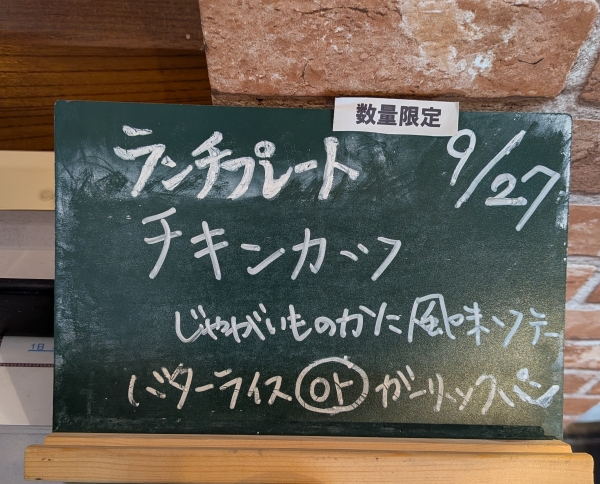 数量限定
ランチプレート 9/27
チキンカツ
じゃがいものかに風味ソテー
バターライス or ガーリックパン
1日